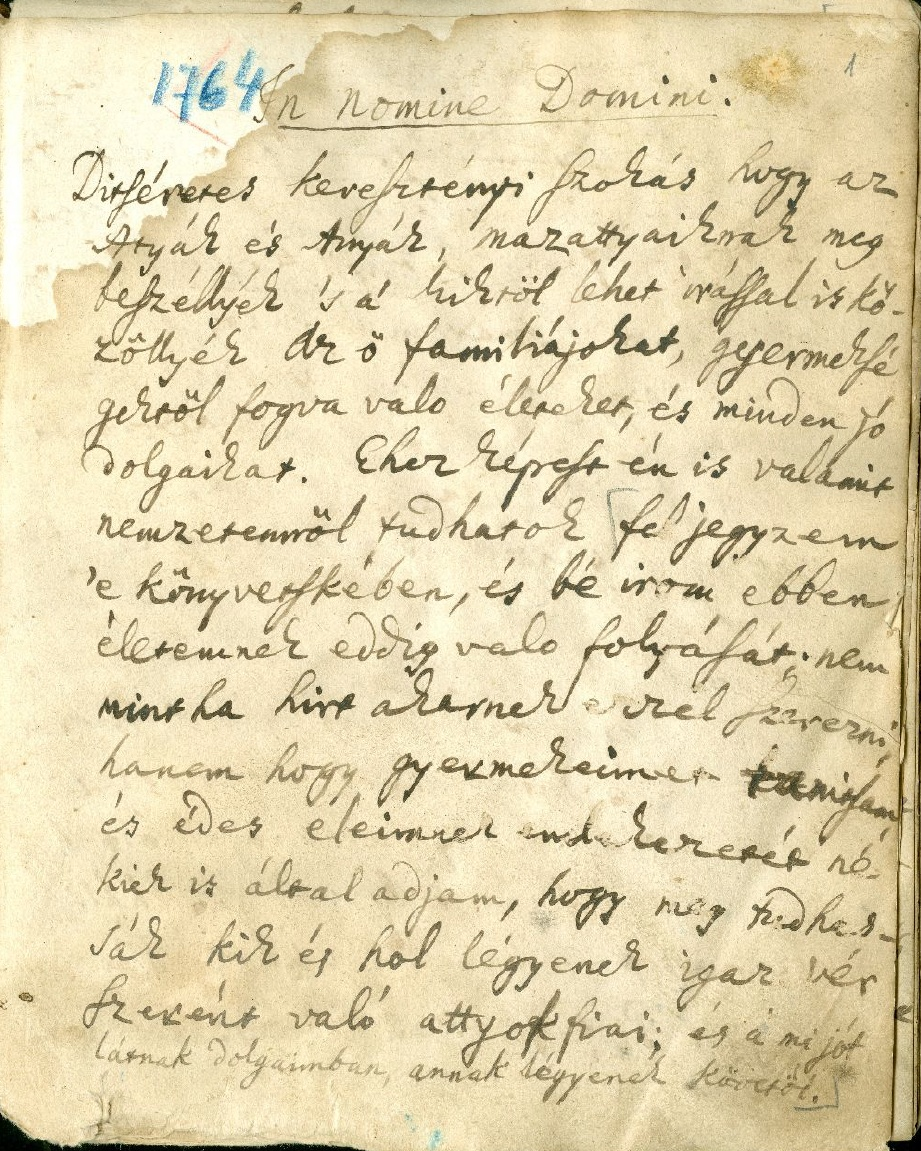 1764
1
In Nomine Domini.
Ditséretes keresztényi szokás hogy az
Atyák és Anyák, mazattyaiknak meg
beszéllyék 's a' kiktöl lehet irással is kö-
zöllyék az ö familiájokat, gyermeksé
gektöl fogva valo életeket, és minden jó
dolgaikat. Ehez képest én is valamit
nemzetemröl tudhatok fel jegyzem
'e könyvetskében, és bé irom ebben
életemnek eddig valo folyását; nem
mintha hirt akarnek ezzel szerezni,
hanem hogy gyermekeimet tanitsam,
és édes eleimnek emlekezetét né-
kiek is által adjam, hogy meg tudhas-
sák kik és hol légyenek igaz vér
szerént való attyokfiai; és a mi jót
látnak dolgaimban, annak légyenek követöi.